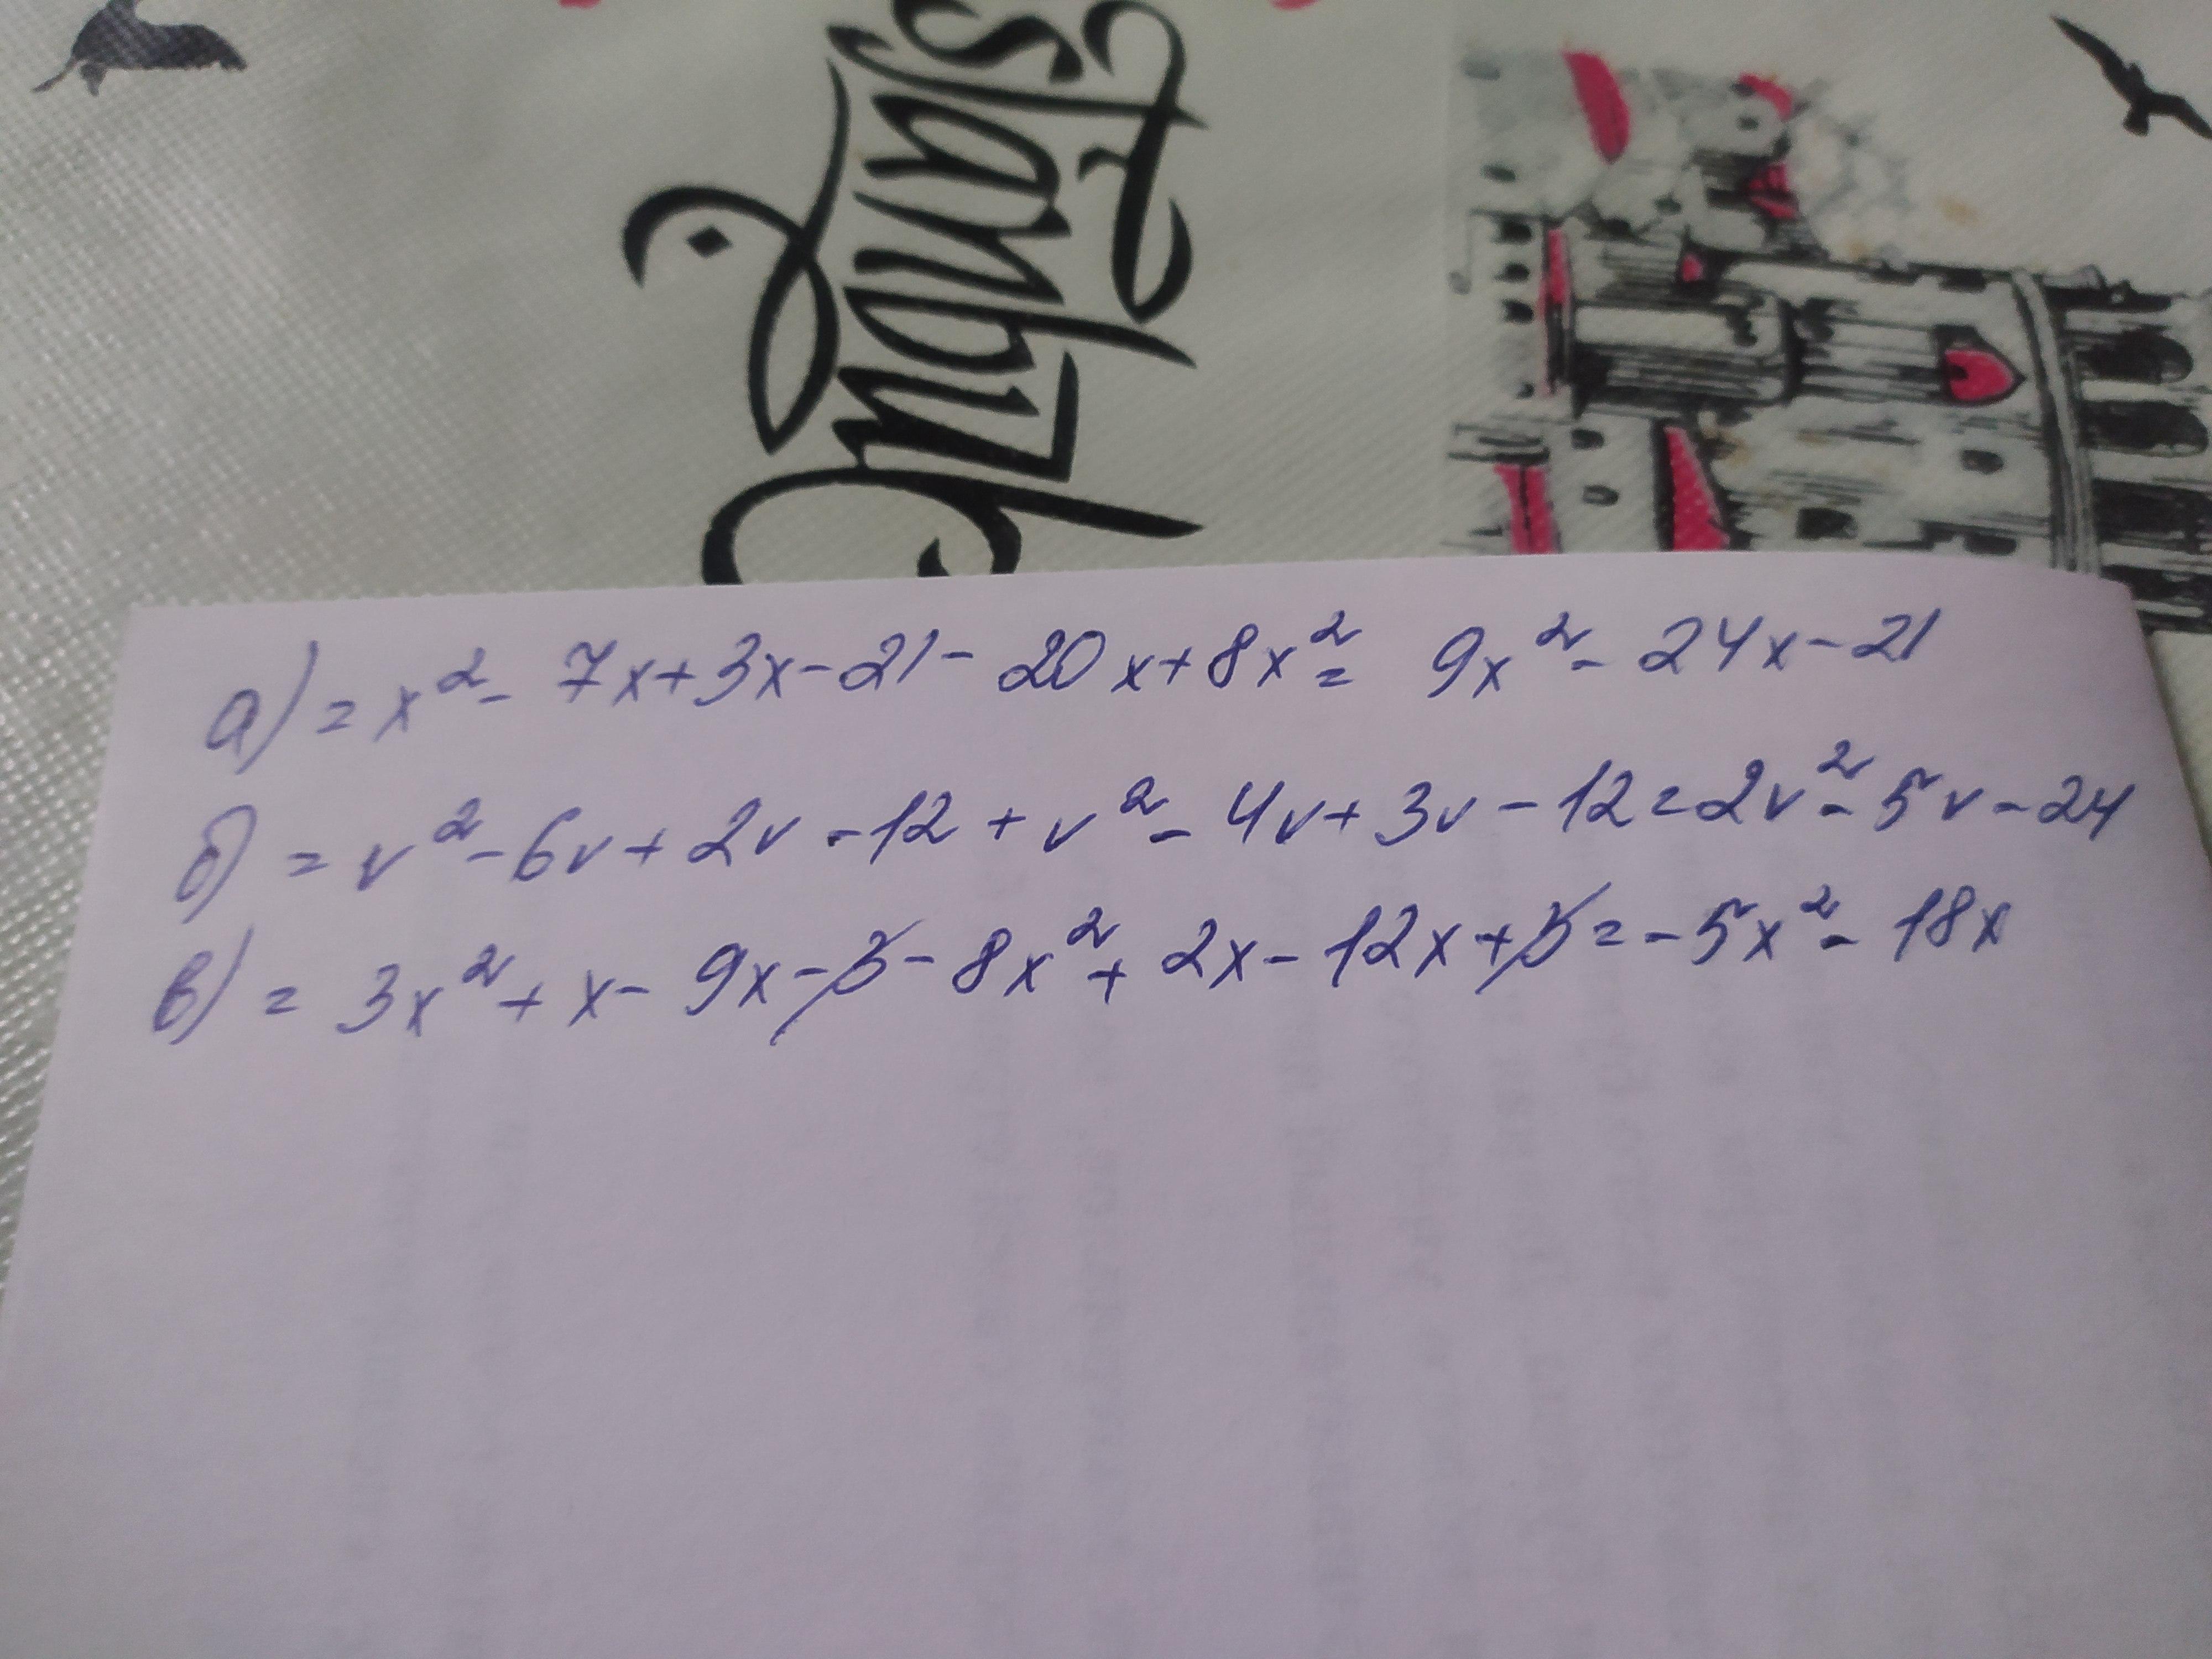 istanbul
а) = x² - 7x + 3x - 21 - 20x + 8x² = 9x² - 24x - 21
б) = v² - 6v + 2v - 12 + v² - 4v + 3v - 12 = 2v² - 5v - 24
в) = 3x² + x - 9x - 3 - 8x² + 2x - 12x + 3 = -5x² - 18x